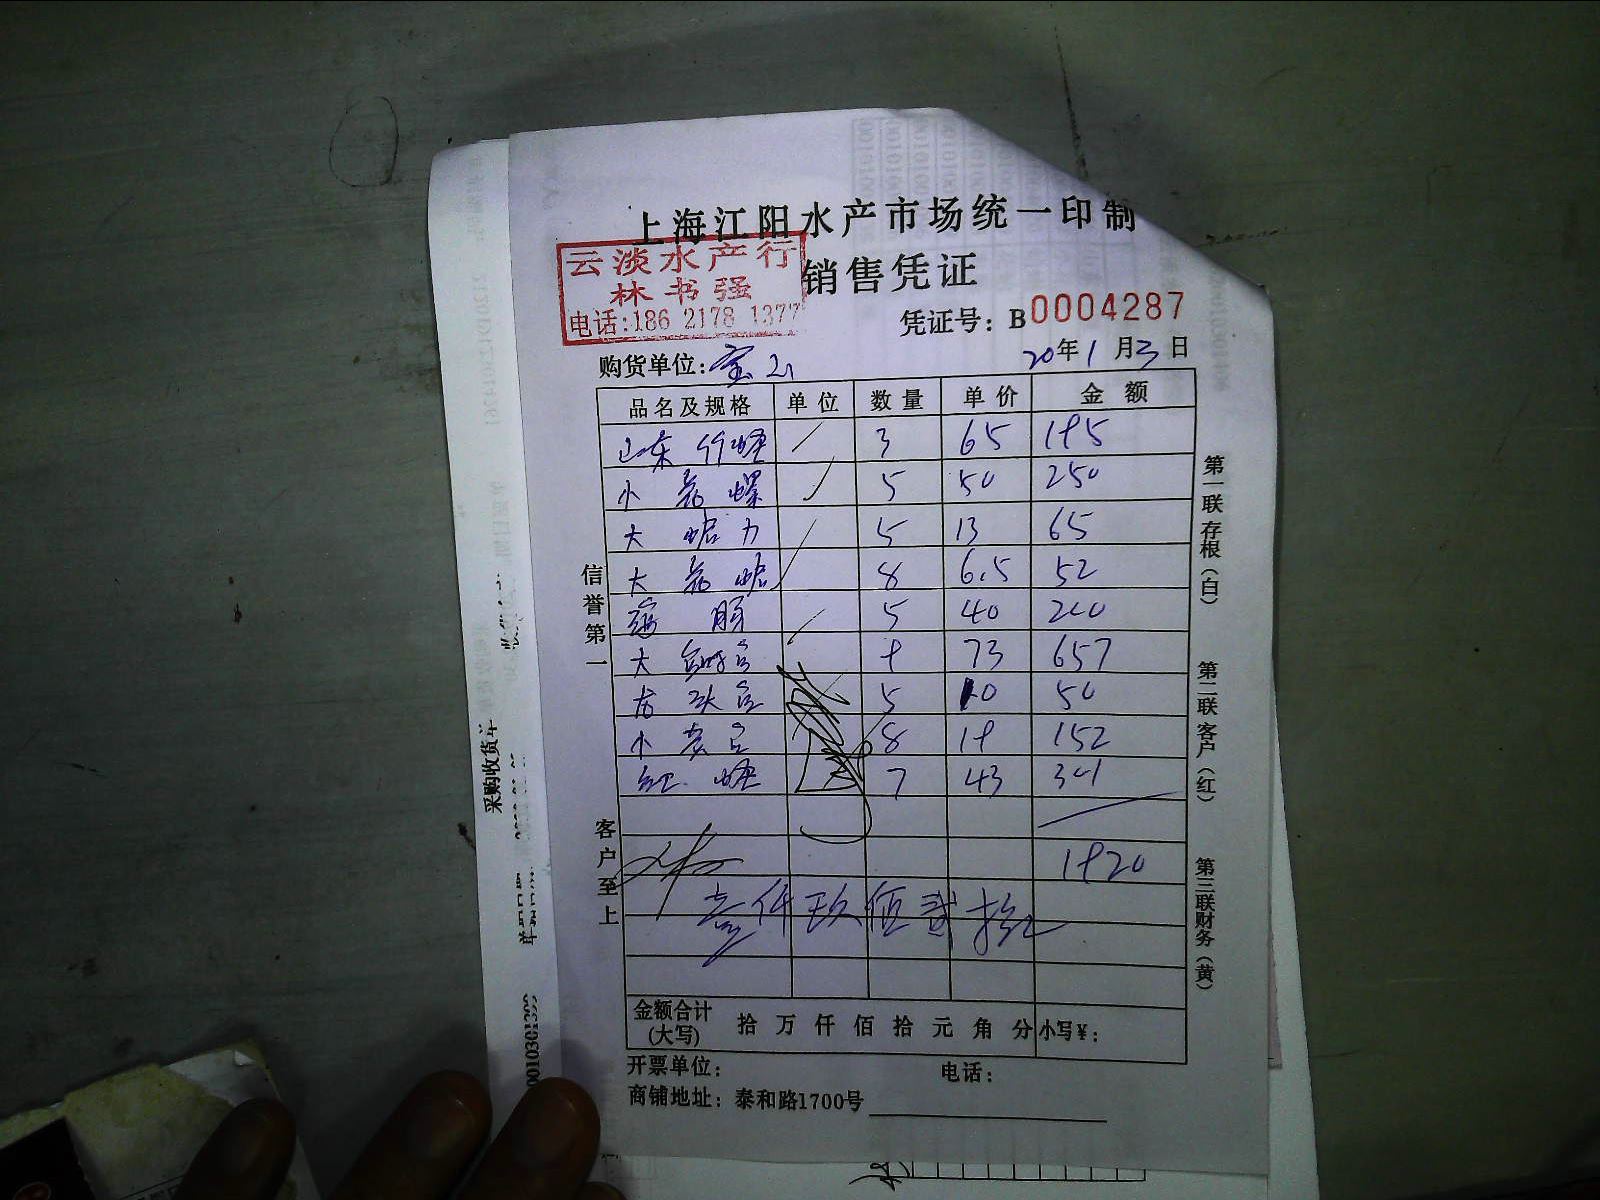 上海江阳水产市场统一印制
云淡水产行
林书强
电话:186 2178 1377
销售凭证
凭证号: B0004287
购货单位: 宝山 20年1月3日
品名及规格 单位 数量 单价 金额
山东竹蛏 3 65 195
小花螺 5 50 250
大蛤力 5 13 65
大花蛤 8 6.5 52
5 40 200
大 9 73 657
龙头 5 10 50
小 8 19 152
红蛏 7 43 301
1920
壹仟玖佰贰拾
金额合计(大写) 拾 万 仟 佰 拾 元 角 分 小写¥:
开票单位: 电话:
商铺地址: 泰和路1700号
信誉第一
客户至上
第一联存根(白)
第二联客户(红)
第三联财务(黄)
采购收货单